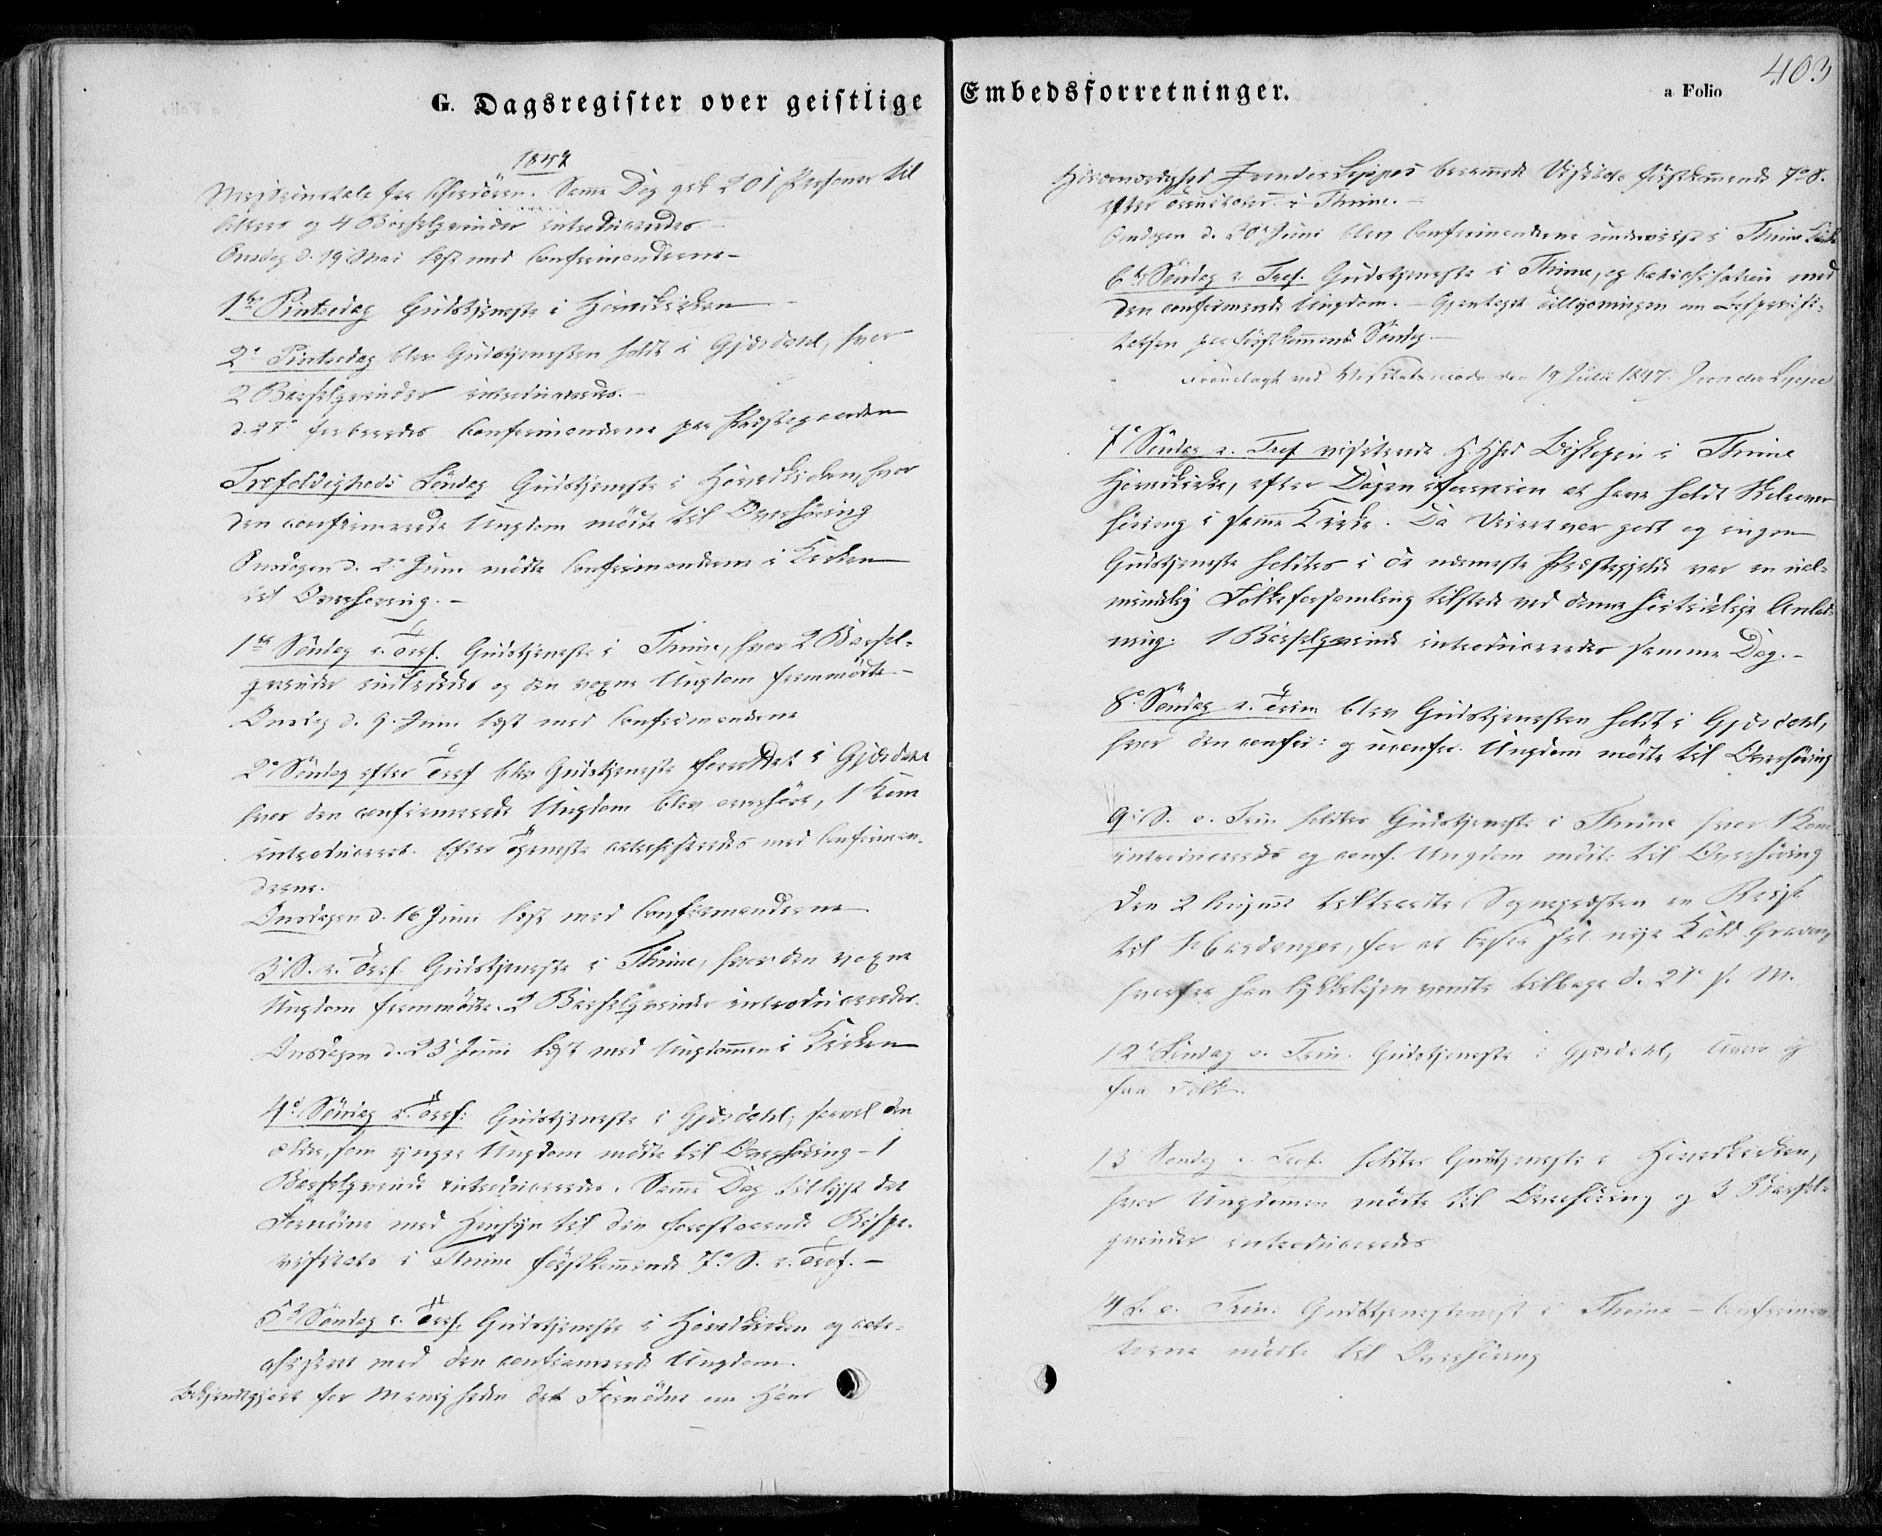 403
G. Dagsregister over geistlige Embedsforretninger.
a Folio
1847
Samme Dag gik 201 Personer til
Alters og 4 Barselqvinder introduceredes.
Onsdag d. 19 Mai læst med Confirmanderne
1ste Pintsedag Gudstjeneste i Hovedkirken
2d Pintsedag blev Gudstjenesten holdt i Gjæsdahl, hvor
2 Barselqvinder introduceredes.
d. 27 Confirmanderne paa Præstegaarden
Trefoldigheds Søndag Gudstjeneste i Hovedkirken, hvor
den confirmerede Ungdom mødte til Overhøring
Onsdagen d. 2d Juni mødte Confirmanderne i Kirken
til Overhøring. -
1ste Søndag e. Tref. Gudstjeneste i Thime, hvor 2 Barsel-
qvinder indlededes og den voxne Ungdom fremmødte -
Onsdag d. 9. Juni læst med Confirmanderne
2d Søndag efter Tref blev Gudstjeneste forrettet i Gjæsdahl
hvor den confirmerede Ungdom blev overhørt, 1 Kone
introduceret. Efter Tjeneste catechiseredes med Confirman-
derne.
Onsdagen d. 16 Juni læst med Confirmanderne
3d S. e. Tref. Gudstjeneste i Thime, hvor den voxne
Ungdom fremmødte. 2 Barselqvinder introduceredes.
Onsdagen d. 23 Juni læst med Ungdommen i Kirken
4d Søndag e. Tref: Gudstjeneste i Gjæsdahl, saavel den
ældre, som yngre Ungdom mødte til Overhøring - 1
Barselqvinde introduceredes. Samme Dag tillyst det
Fornødne med Hensyn til den forestaaende Bispe-
visitats i Thime førstkommende 7d S. e. Tref. -
5d Søndag e. Tref. Gudstjeneste i Hovedkirken og cate-
chiseret med den confirmerede Ungdom.
Bekjendtgjort for Menigheden det Fornødne om Hans
Høiærværdighed berammede Visitats førstkommende 7d S.
efter i Thime. -
Onsdagen d. Juni blev Confirmanderne underviist i Thime Kirke
6te Søndag e. Tref. Gudstjeneste i Thime, og Catechisation med
den confirmerede Ungdom. - Gjentaget Tillysningen om Bispevisi-
tatsen paa førstkommende Søndag. -
Fremlagt ved Visitats den 19 Juli 1847.
7d Søndag e. Tref visiterede H. Biskopen i Thime
Hovedkirke, efter Dagen forveien at have holdt Skoleover-
høring i samme Kirke. Da Veiret var godt og ingen
Gudstjeneste holdtes i de nærmeste Præstegjeld var en ual-
mindelig Folkeforsamling tilstede ved denne høitidelige Anled-
ning. 1 Barselqvinde introduceredes samme Dag. -
8d Søndag e. Trin blev Gudstjenesten holdt i Gjæsdahl,
hvor den confir: og uconfir. Ungdom mødte til Overhøring
9d S. e. Trin. holdtes Gudstjeneste i Thime hvor 1 Kone
introduceredes og conf. Ungdom mødte til Overhøring
Den 2 August tiltraadte Sognepræsten en Reise
til Hardanger, for at besee sit nye Kald Graven,
hvorfra han lykkeligen vendte tilbage d. 21d s. M.
12d Søndag e. Trin. Gudstjeneste i Gjæsdahl, og
faa Folk.
13 Søndag e. Tref. holdtes Gudstjeneste i Hovedkirken,
hvor Ungdomen mødte til Overhøring og 3 Barsel-
qvinder introduceredes
14 S. e. Trin. Gudstjeneste i Thime - Confirman-
derne mødte til Overhøring